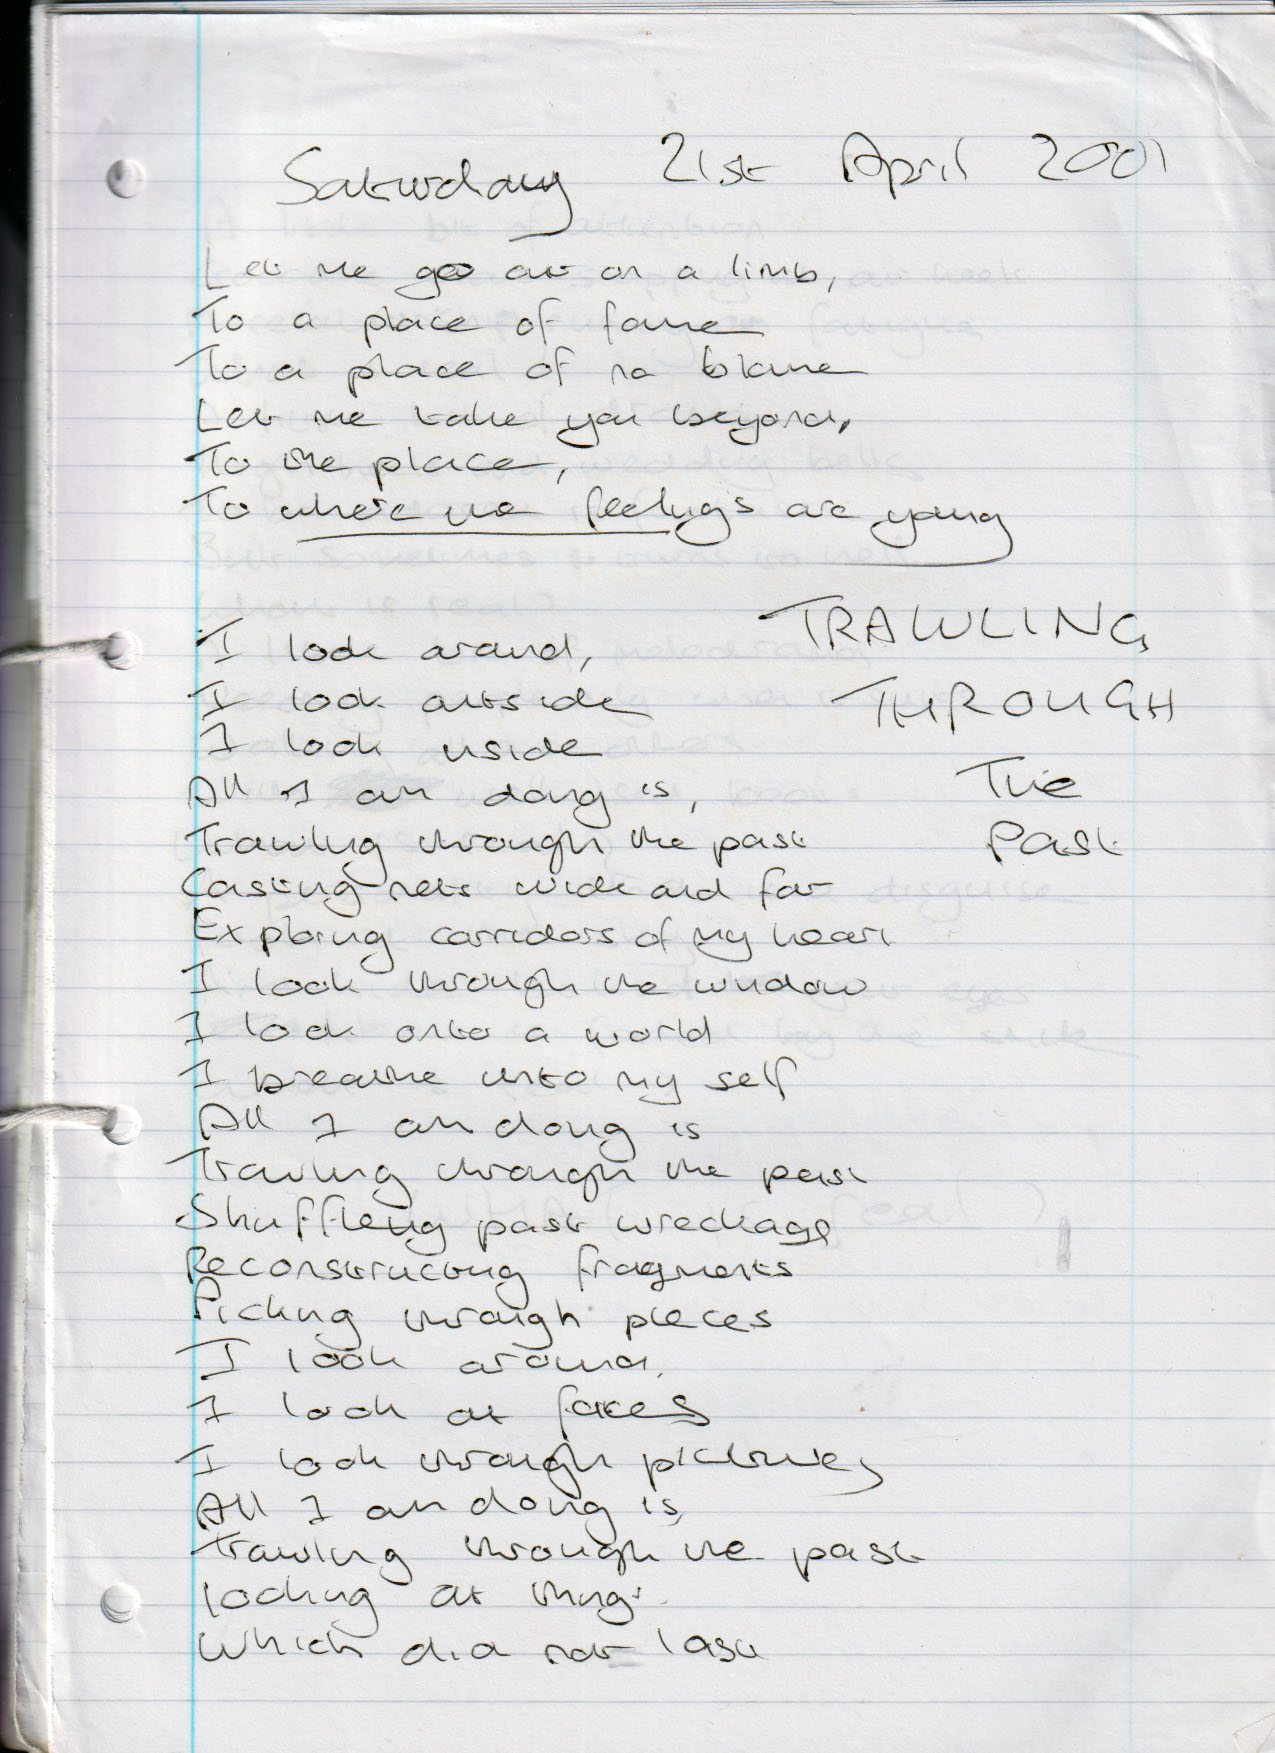 Saturday 21st April 2001
Let me go out on a limb,
To a place of fame
To a place of no blame
Let me take you beyond,
To the place,
To where the feelings are young
TRAWLING
THROUGH
The
Past
I look around,
I look outside
I look inside
All I am doing is,
Trawling through the past
Casting nets wide and far
Exploring corridors of my heart
I look through the window
I look onto a world
I breathe into my self
All I am doing is
Trawling through the past
Shuffling past wreckage
Reconstructing fragments
Picking through pieces
I look around,
I look at faces
I look through pictures
All I am doing is,
Trawling through the past
Looking at things
Which did not last